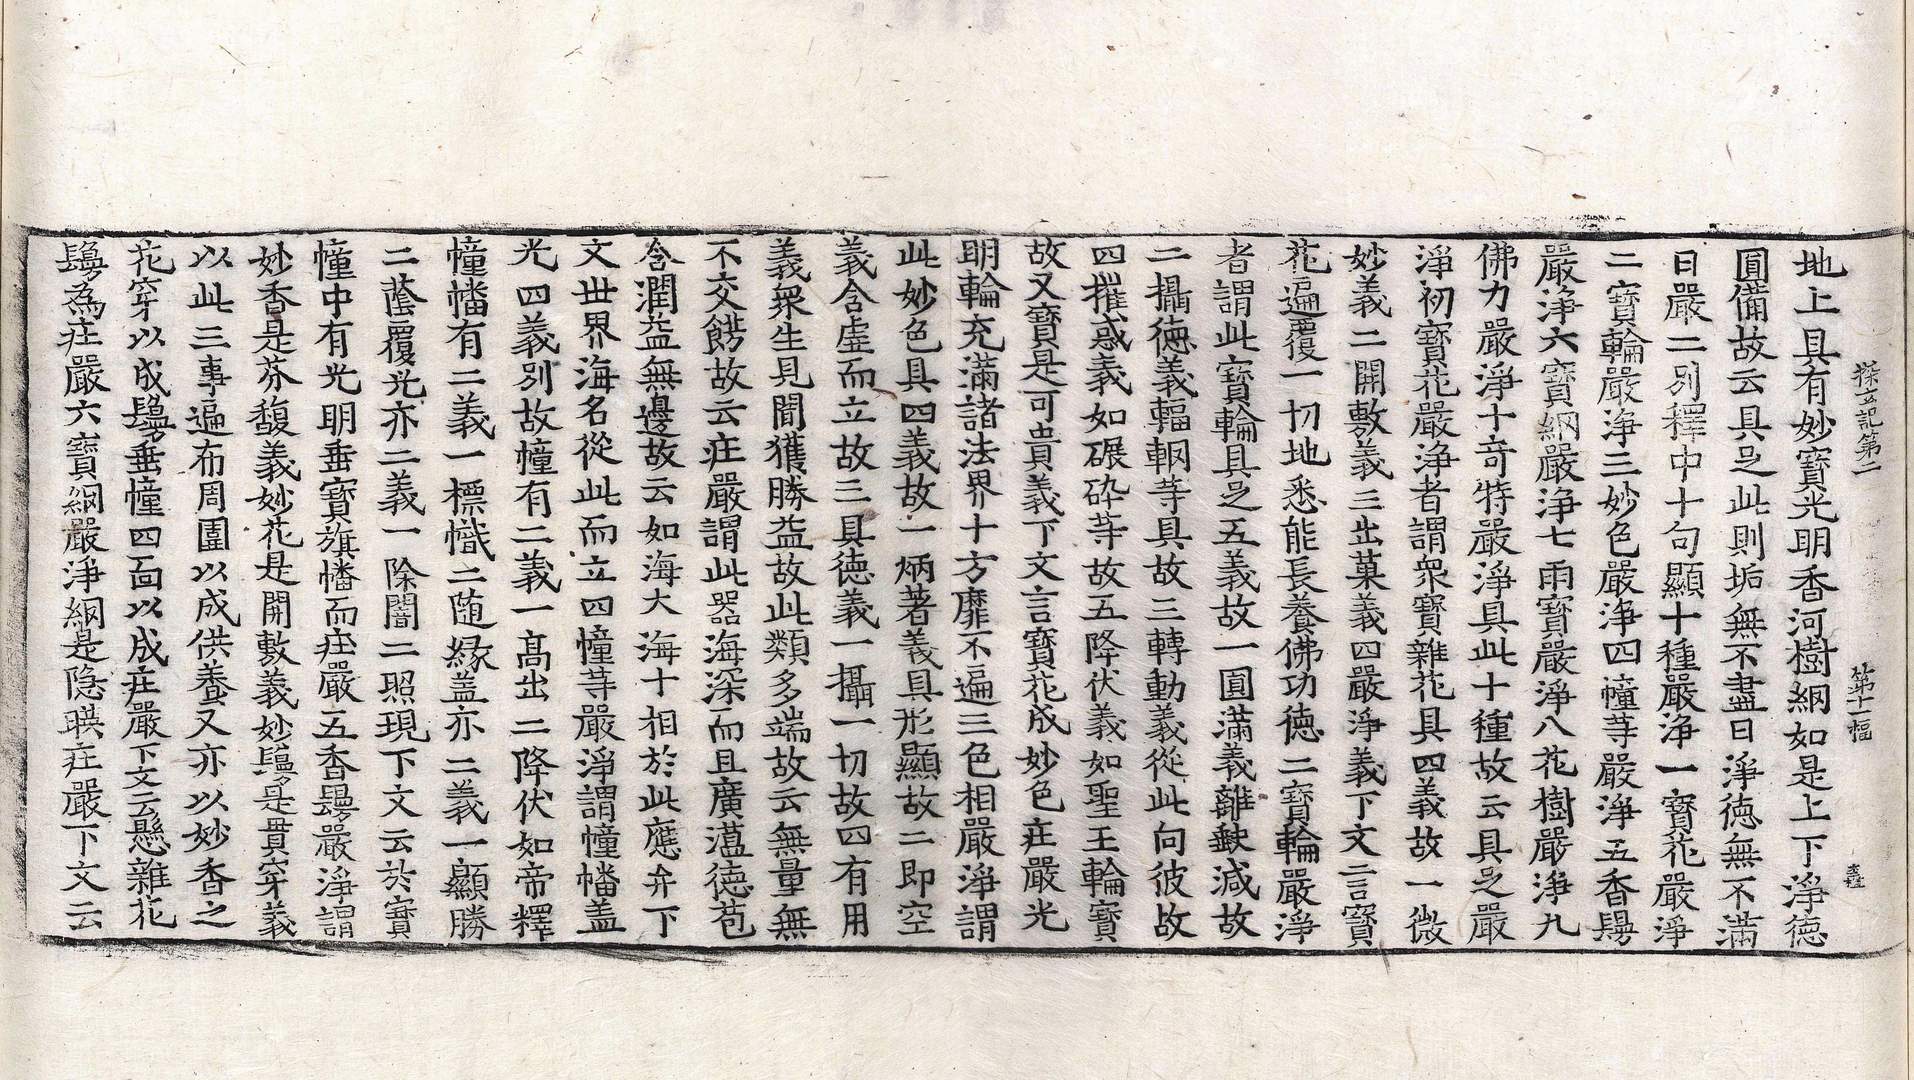 探玄記第二 第十一幅
地上具有妙寶光明香河樹網如是上下淨德
圓備故云具足此則垢無不盡曰淨德無不滿
曰嚴二別釋中十句顯十種嚴淨一寶花嚴淨
二寶輪嚴淨三妙色嚴淨四幢等嚴淨五香鬘
嚴淨六寶網嚴淨七雨寶嚴淨八花樹嚴淨九
佛力嚴淨十奇特嚴淨具此十種故云具足嚴
淨初寶花嚴淨者謂衆寶雜花具四義故一微
妙義二開敷義三出菓義四嚴淨義下文言寶
花遍覆一切地悉能長養佛功德二寶輪嚴淨
者謂此寶輪具足五義故一圓滿義離缺減故
二攝德義輻輞等具故三轉動義從此向彼故
四摧惑義如碾砕等故五降伏義如聖王輪寶
故又寶是可貴義下文言寶花成妙色庄嚴光
明輪充滿諸法界十方靡不遍三色相嚴淨謂
此妙色具四義故一炳著義具形顯故二即空
義含虛而立故三具德義一攝一切故四有用
義衆生見聞獲勝益故此類多端故云無量無
不交餝故云庄嚴謂此器海深而且廣薀德苞
含潤益無邊故云如海大海十相於此應弁下
文世界海名從此而立四幢等嚴淨謂幢幡盖
光四義別故幢有二義一高出二降伏如帝釋
幢幡有二義一標幟二随緣盖亦二義一顯勝
二蔭覆光亦二義一除闇二照現下文云於寶
幢中有光明垂寶旗幡而庄嚴五香鬘嚴淨謂
妙香是芬馥義妙花是開敷義妙鬘是貫穿義
以此三事遍布周圍以成供養又亦以妙香之
花穿以成鬘垂幢四面以成庄嚴下文云懸雜花
鬘為庄嚴六寶網嚴淨網是隐暎庄嚴下文云